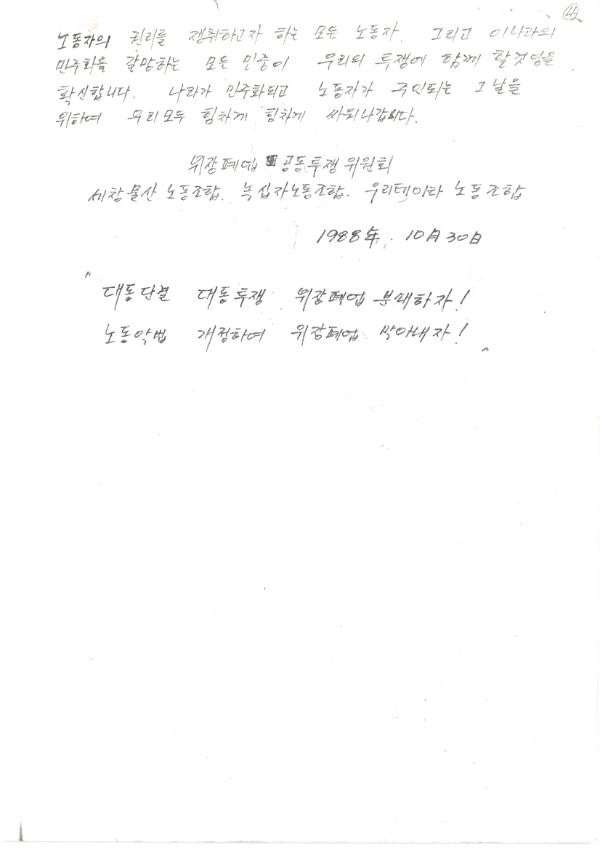 ④
노동자의 권리를 쟁취하고자 하는 모든 노동자. 그리고 이나라의
민주화을 갈망하는 모든 민중이 우리의 투쟁에 함께 할것임을
확신합니다. 나라가 민주화되고 노동자가 주인되는 그날을
위하여 우리모두 힘차게 힘차게 싸워나갑시다.
위장폐업 공동투쟁위원회
세창물산 노동조합. 녹십자노동조합. 우리데이타 노동조합
1988年. 10月 30日
"대동단결 대동투쟁 위장폐업 분쇄하자!
노동악법 개정하여 위장폐업 막아내자!"